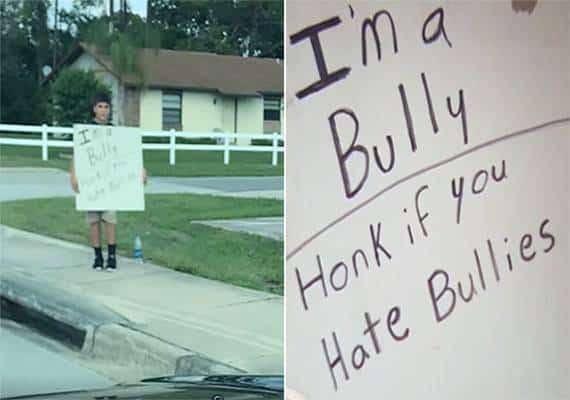 I'm a
Bully
Honk if you
Hate Bullies
I'm a
Bully
Honk if You
Hate Bullies